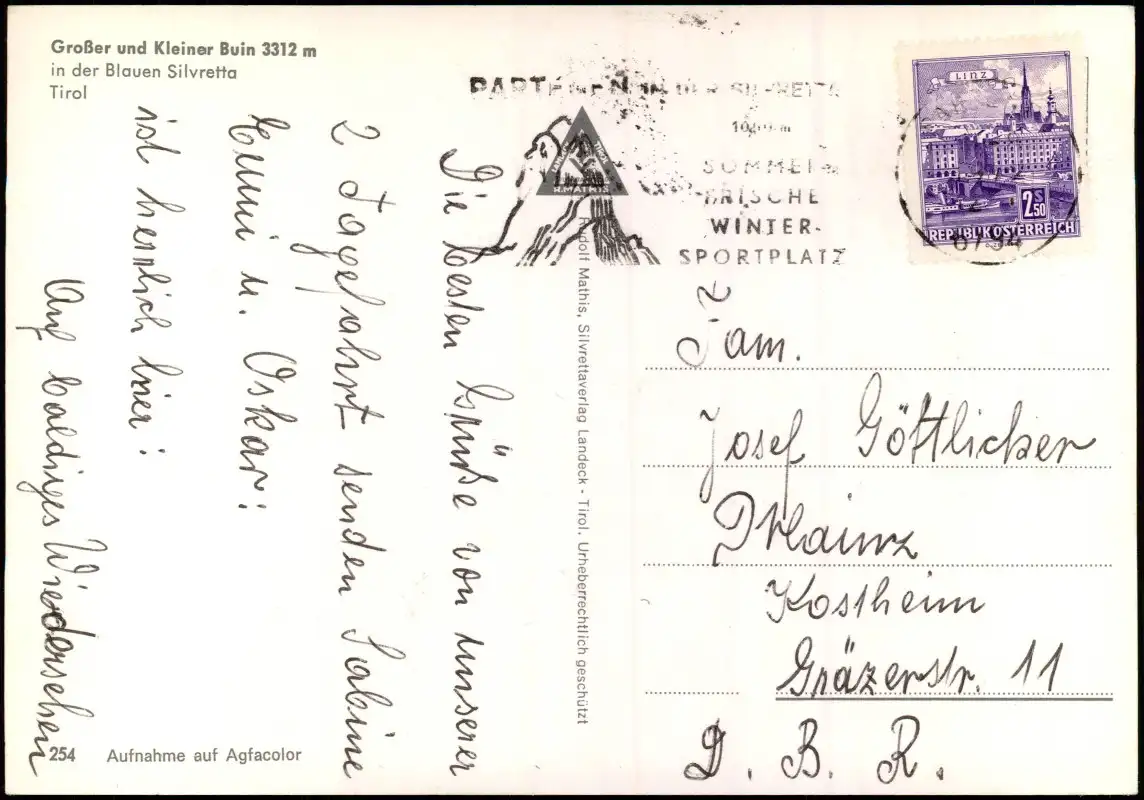 Großer und Kleiner Buin 3312 m
in der Blauen Silvretta
Tirol
PARTENEN IN DER SILVRETTA
SOMMER-
FRISCHE
WINTER-
SPORTPLATZ
LINZ
2.50
REPUBLIK ÖSTERREICH
R. MATHIS
Die besten Grüße von unserer
2 Tagefahrt senden Sabine
Emmi u. Oskar!
ist herrlich hier!
Auf baldiges Wiedersehen
Rudolf Mathis, Silvrettaverlag Landeck - Tirol. Urheberrechtlich geschützt
Fam.
Josef Göttlicher
Mainz
Kostheim
Gräzerstr. 11
D. B. R.
254 Aufnahme auf Agfacolor